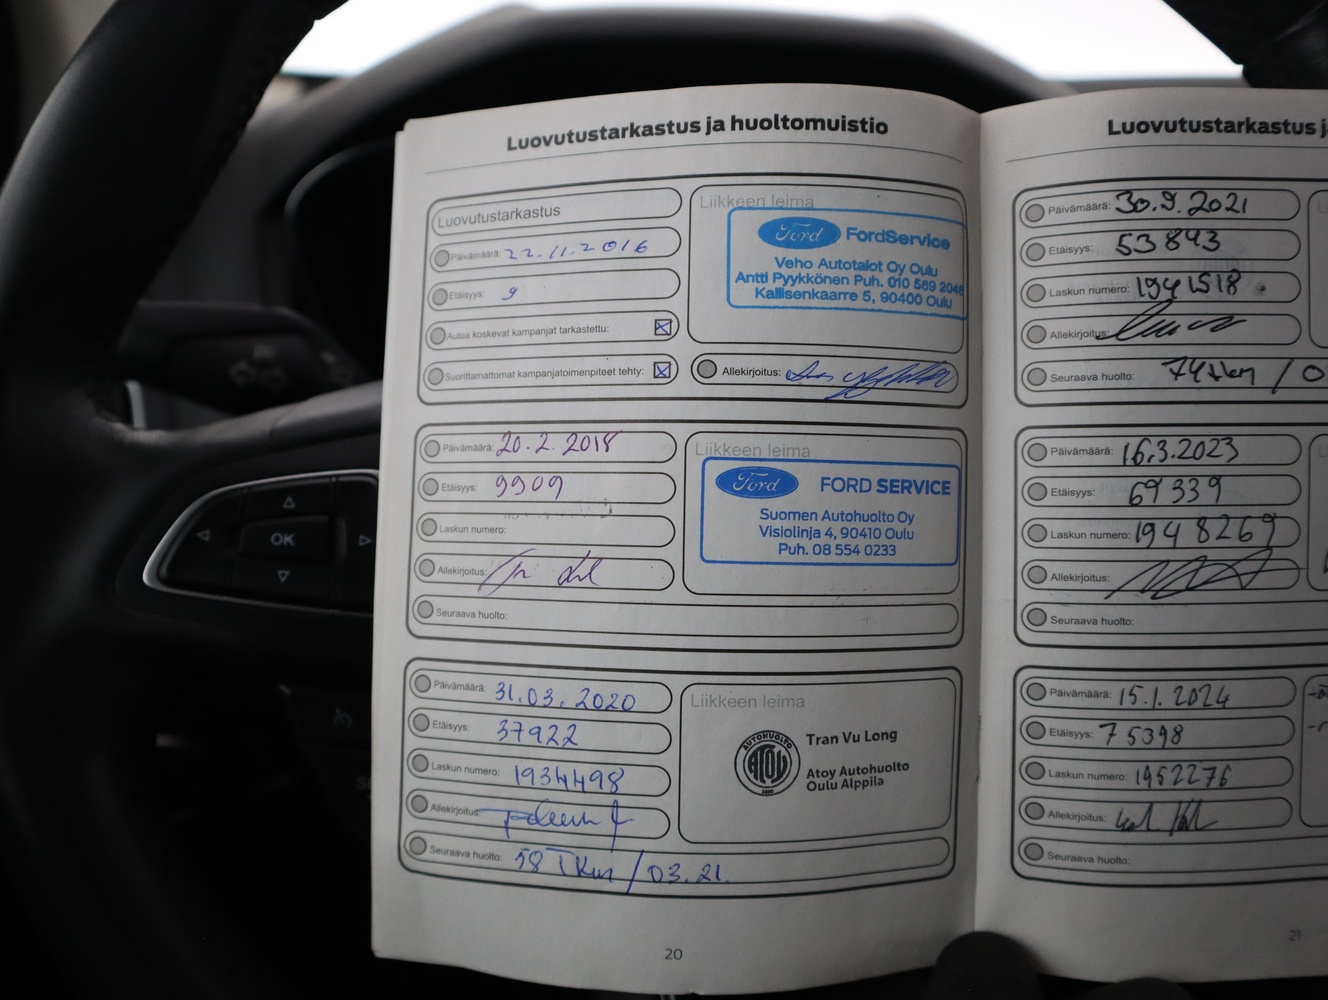 Luovutustarkastus ja huoltomuistio
Luovutustarkastus
Päivämäärä: 22.11.2016
Etäisyys: 9
Autoa koskevat kampanjat tarkastettu:
Suorittamattomat kampanjatoimenpiteet tehty:
Liikkeen leima
Ford FordService
Veho Autotalot Oy Oulu
Antti Pyykkönen Puh. 010 569 2048
Kallisenkaarre 5, 90400 Oulu
Allekirjoitus:
Päivämäärä: 20.2.2018
Etäisyys: 9909
Laskun numero:
Allekirjoitus:
Seuraava huolto:
Liikkeen leima
Ford FORD SERVICE
Suomen Autohuolto Oy
Visiolinja 4, 90410 Oulu
Puh. 08 554 0233
Päivämäärä: 31.03.2020
Etäisyys: 37922
Laskun numero: 1934498
Allekirjoitus:
Seuraava huolto: 58 TKm / 03.21.
Liikkeen leima
AUTOHUOLTO
ATOY
Tran Vu Long
Atoy Autohuolto
Oulu Alppila
20
Luovutustarkastus j
Päivämäärä: 30.9.2021
Etäisyys: 53843
Laskun numero: 1941518
Allekirjoitus:
Seuraava huolto: 74tkm / 0
Päivämäärä: 16.3.2023
Etäisyys: 69339
Laskun numero: 1948269
Allekirjoitus:
Seuraava huolto:
Päivämäärä: 15.1.2024
Etäisyys: 75398
Laskun numero: 1952276
Allekirjoitus:
Seuraava huolto:
21
OK